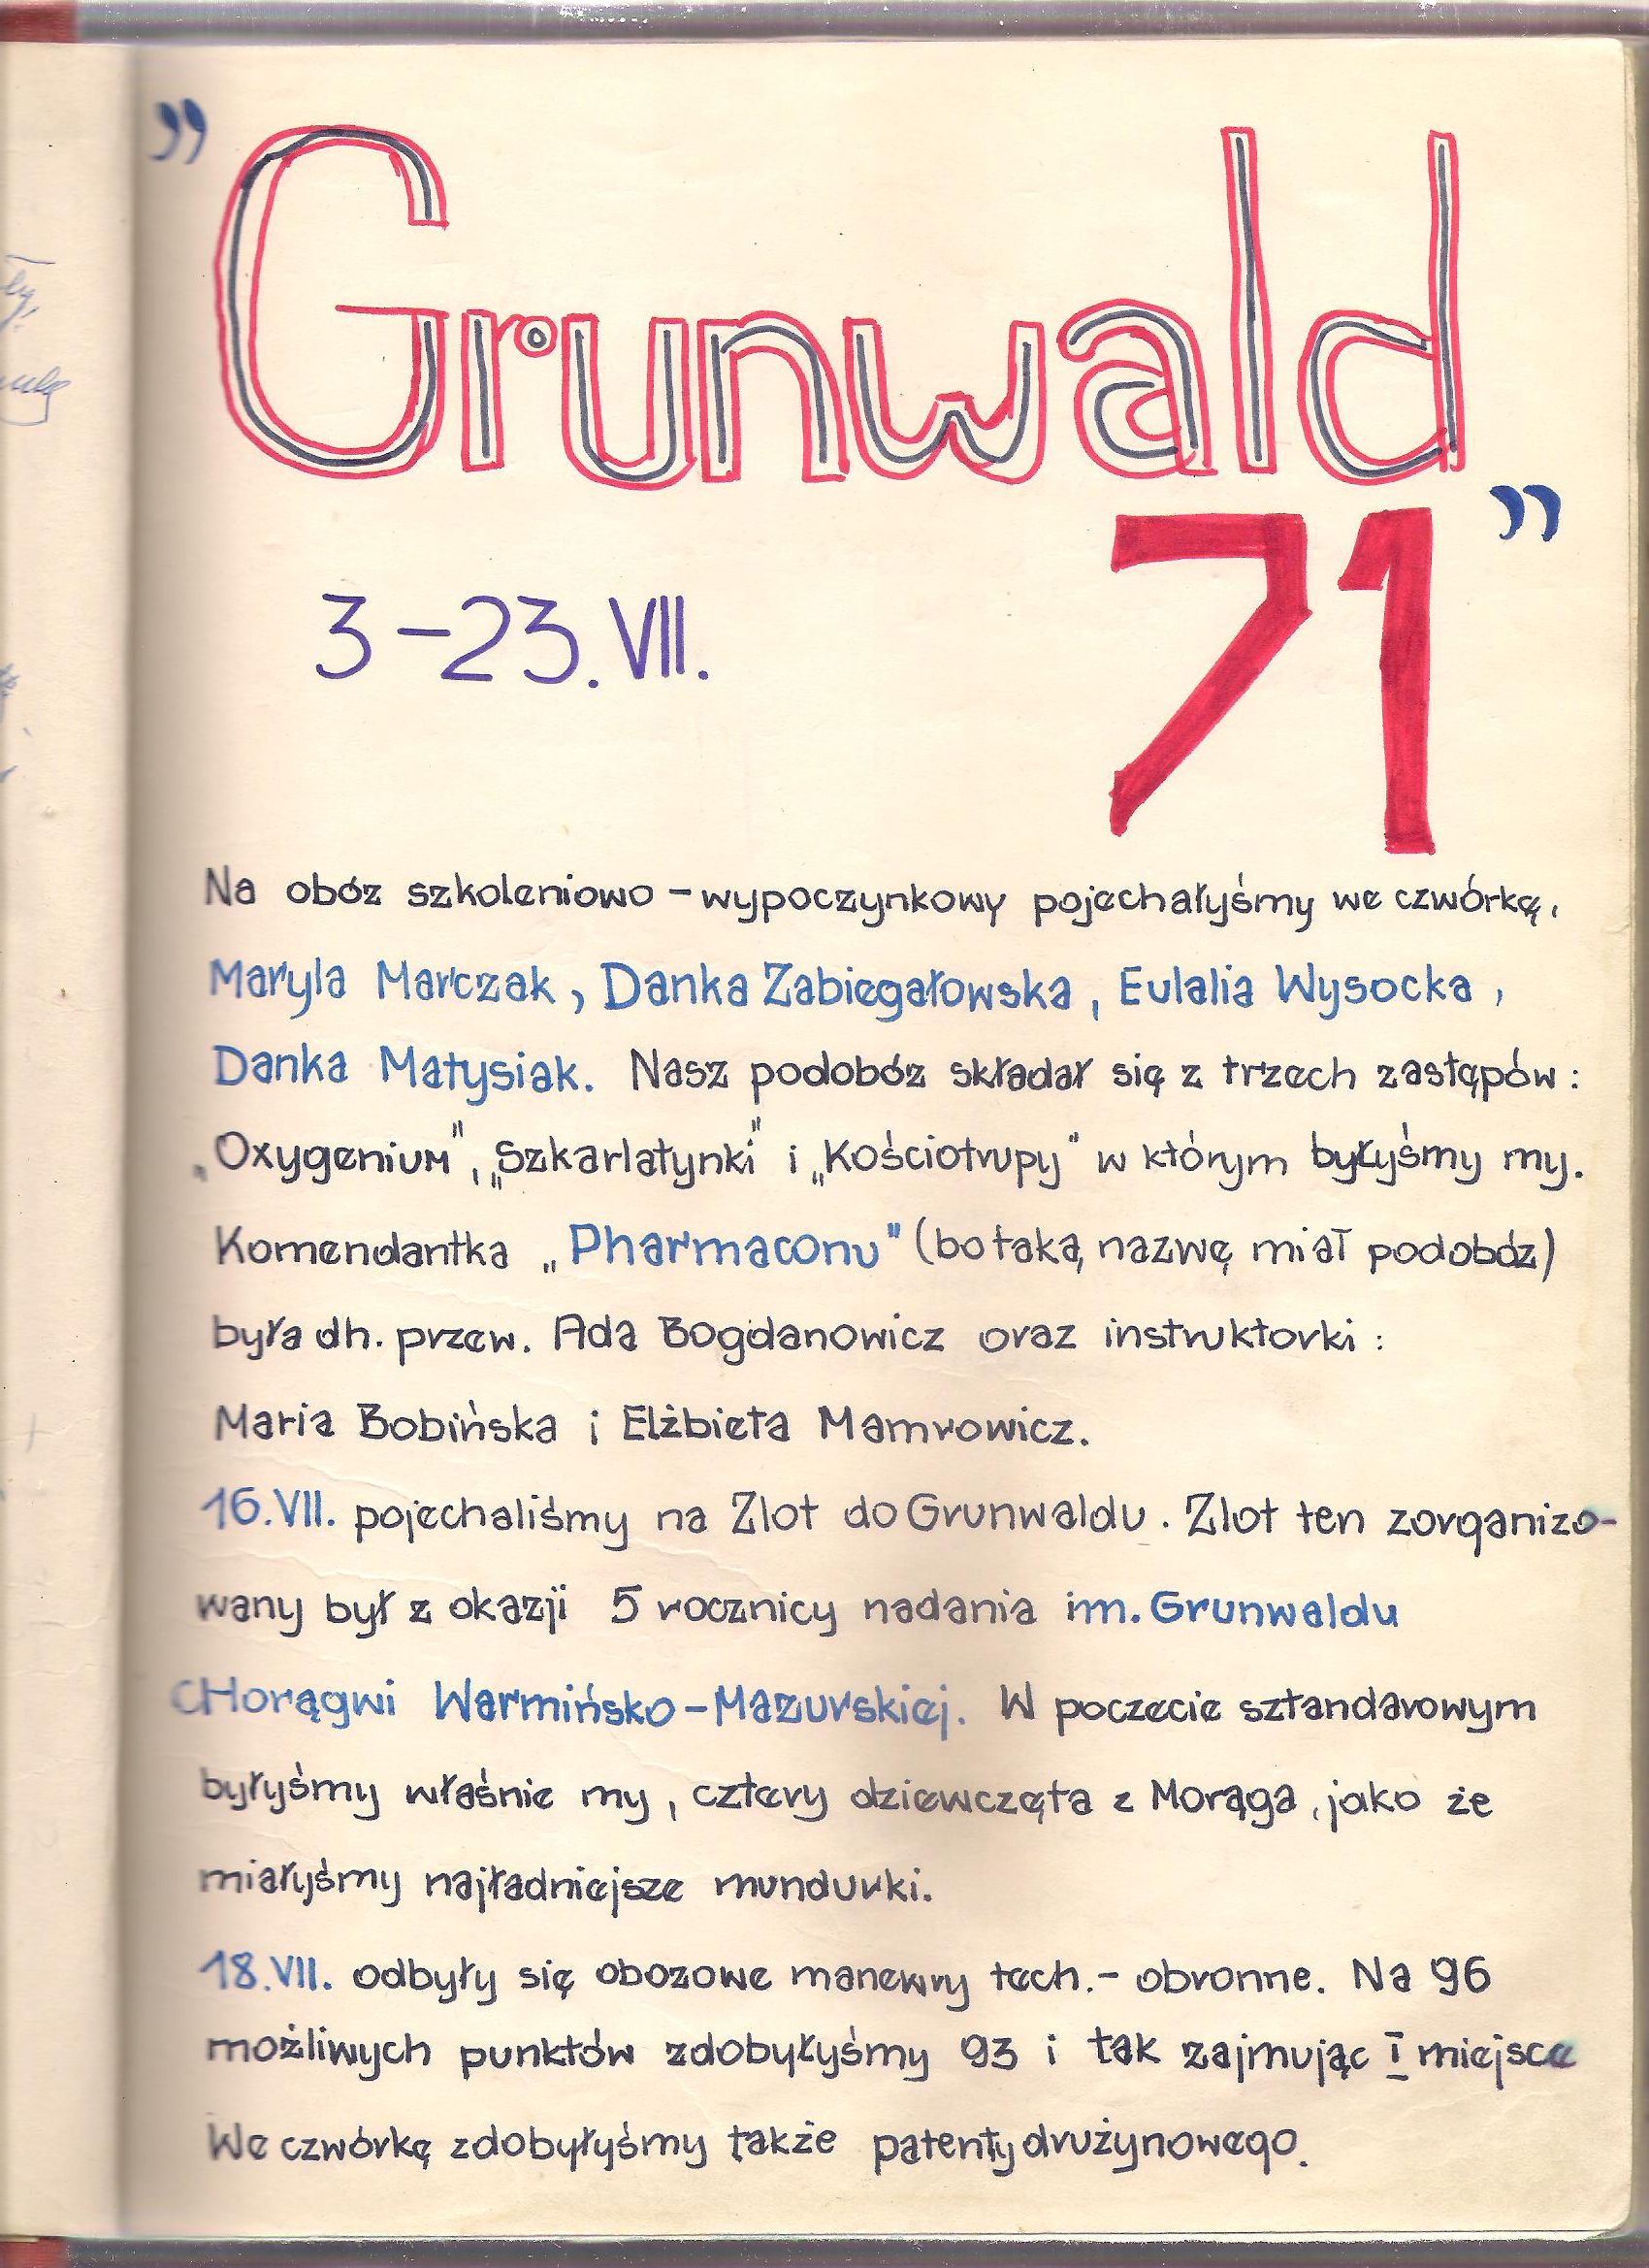 "Grunwald
71"
3-23.VII.
Na obóz szkoleniowo-wypoczynkowy pojechałyśmy we czwórkę,
Maryla Marczak, Danka Zabiegałowska, Eulalia Wysocka,
Danka Matysiak. Nasz podobóz składał się z trzech zastępów:
„Oxygenium", „Szkarlatynki" i „Kościotrupy" w którym byłyśmy my.
Komendantką „Pharmaconu" (bo taką nazwę miał podobóz)
była dh. przew. Ada Bogdanowicz oraz instruktorki:
Maria Bobińska i Elżbieta Mamrowicz.
16.VII. pojechaliśmy na Zlot do Grunwaldu. Zlot ten zorganizo-
wany był z okazji 5 rocznicy nadania im. Grunwaldu
CHorągwi Warmińsko-Mazurskiej. W poczecie sztandarowym
byłyśmy właśnie my, cztery dziewczęta z Morąga, jako że
miałyśmy najładniejsze mundurki.
18.VII. odbyły się obozowe manewry tech.-obronne. Na 96
możliwych punktów zdobyłyśmy 93 i tak zajmując I miejsce
We czwórkę zdobyłyśmy także patenty drużynowego.